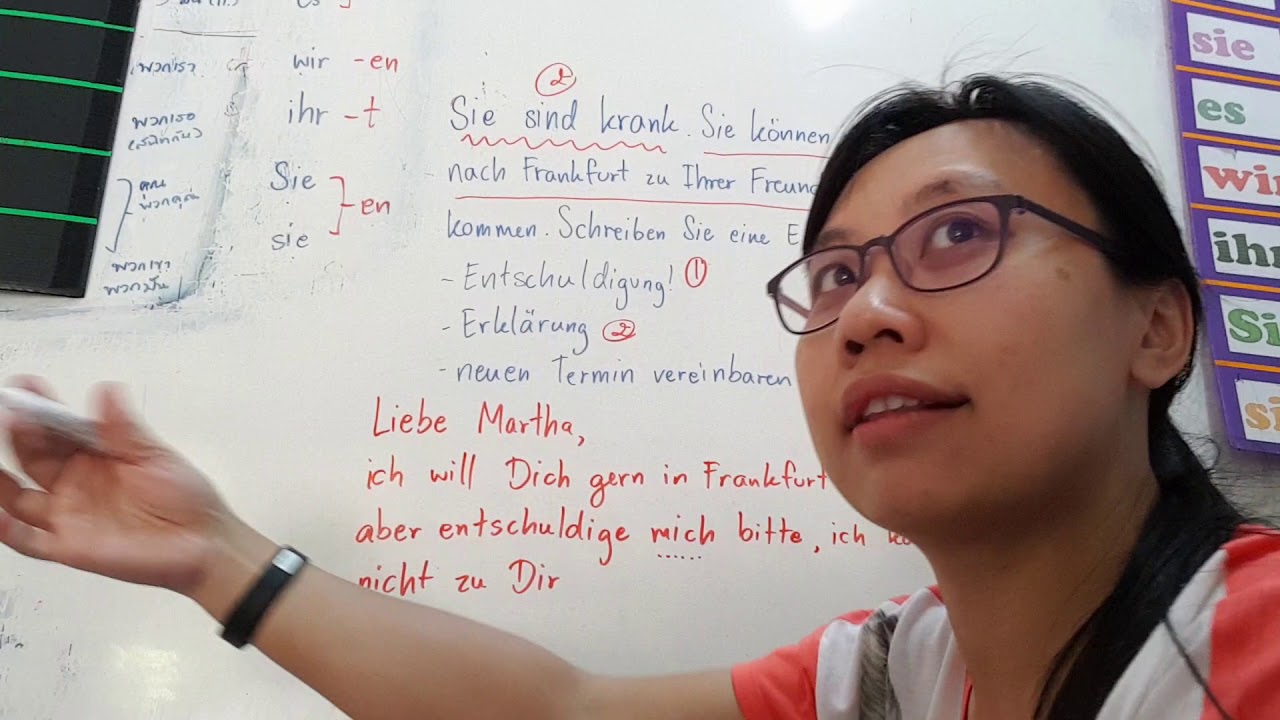 es
พวกเรา
wir -en
พวกเธอ
ihr -t
คุณ
พวกคุณ
Sie
sie
en
พวกเขา
พวกมัน
②
Sie sind krank. Sie können
nach Frankfurt zu Ihrer
kommen. Schreiben Sie eine
- Entschuldigung! ①
- Erklärung ②
- neuen Termin vereinbaren
Liebe Martha,
ich will Dich gern in Frankfurt
aber entschuldige mich bitte, ich
nicht zu Dir
sie
es